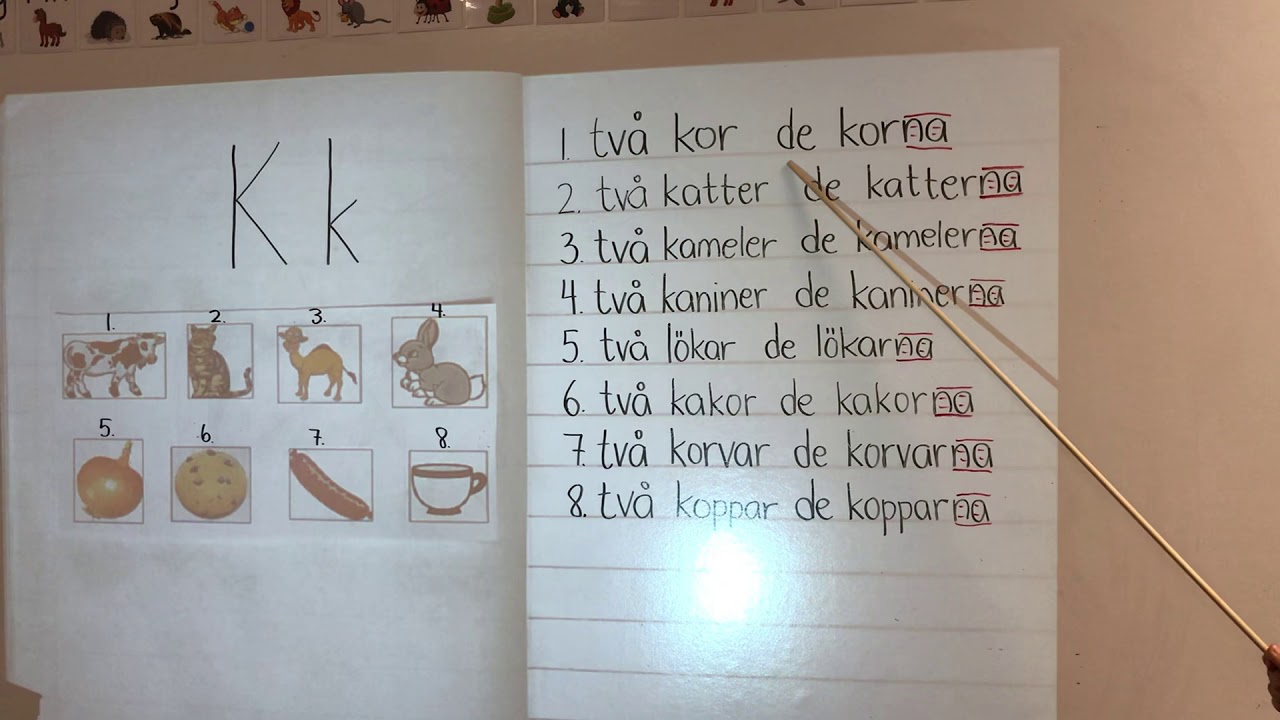 K k
1.
2.
3.
4.
5.
6.
7.
8.
1. två kor de korna
2. två katter de katterna
3. två kameler de kamelerna
4. två kaniner de kaninerna
5. två lökar de lökarna
6. två kakor de kakorna
7. två korvar de korvarna
8. två koppar de kopparna